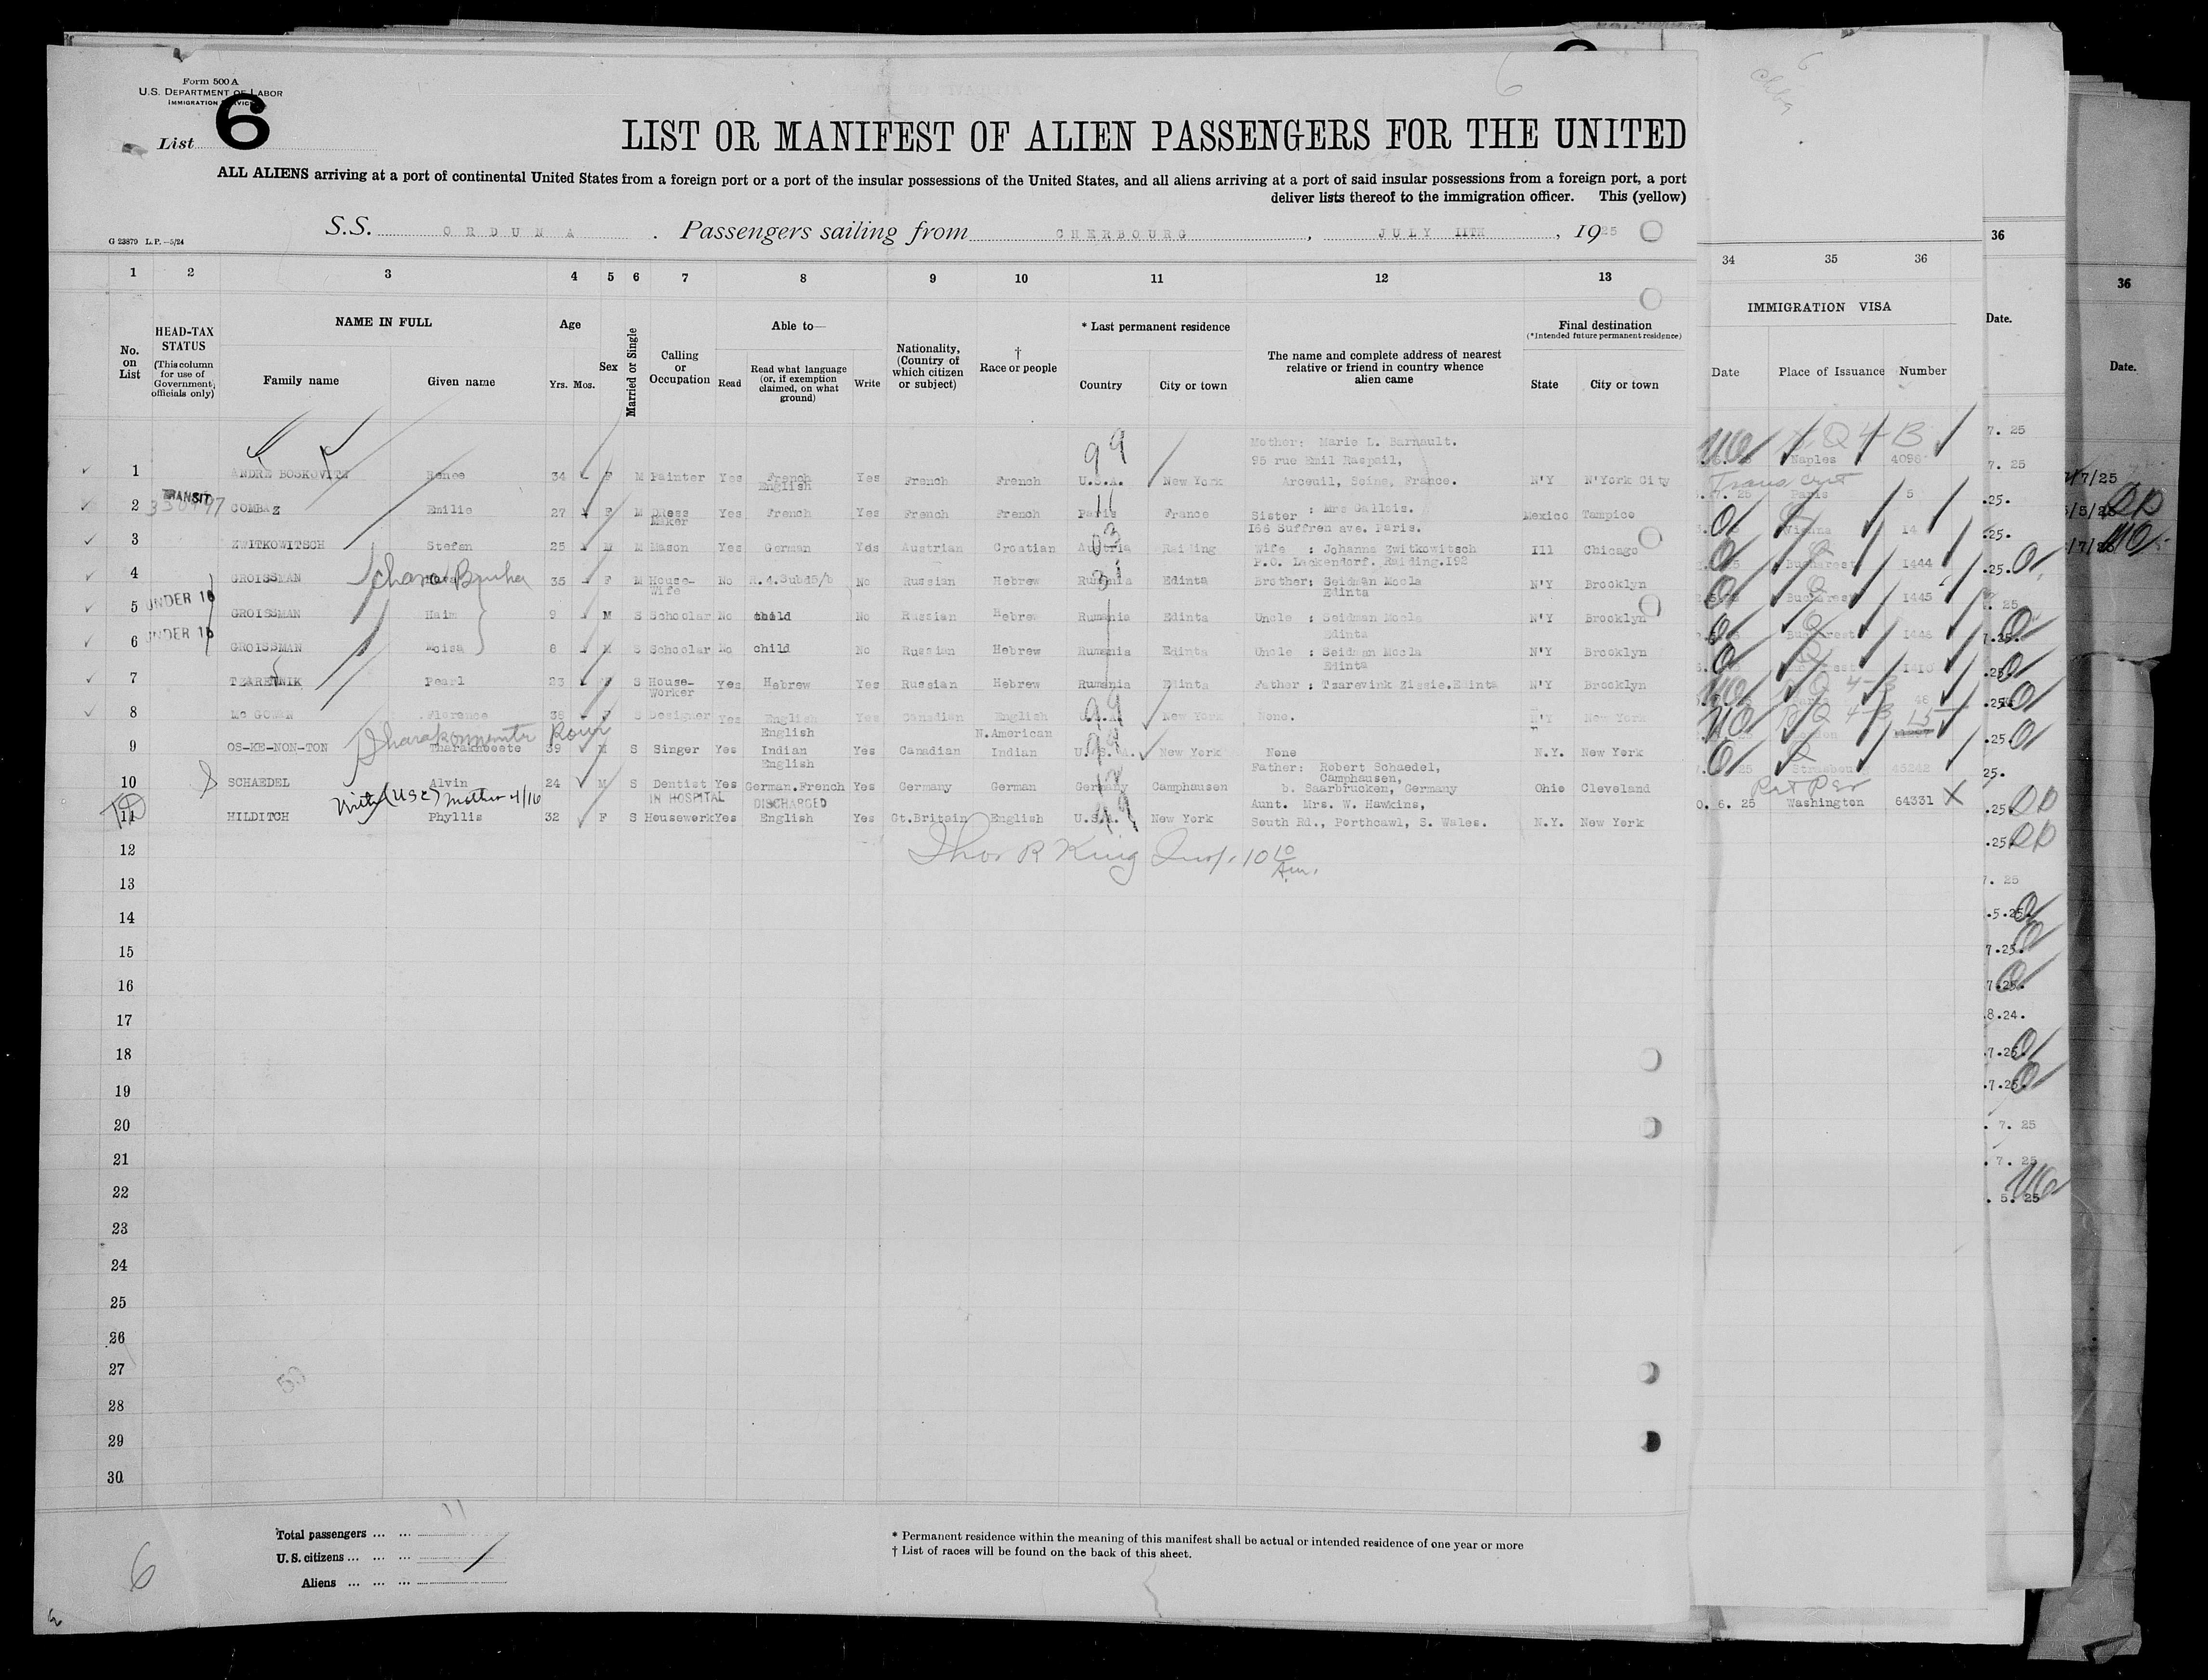 Form 500 A
U.S. DEPARTMENT OF LABOR
IMMIGRATION SERVICE
List 6
LIST OR MANIFEST OF ALIEN PASSENGERS FOR THE UNITED
ALL ALIENS arriving at a port of continental United States from a foreign port or a port of the insular possessions of the United States, and all aliens arriving at a port of said insular possessions from a foreign port, a port
deliver lists thereof to the immigration officer. This (yellow)
G 23879 L.P.—5/24
S.S. ORDUNA. Passengers sailing from CHERBOURG, JULY IITH, 1925
1 2 3 4 5 6 7 8 9 10 11 12 13 34 35 36
No. on List
HEAD-TAX STATUS
(This column for use of Government officials only)
NAME IN FULL
Family name Given name
Age
Yrs. Mos.
Sex
Married or Single
Calling or Occupation
Able to—
Read
Read what language (or, if exemption claimed, on what ground)
Write
Nationality, (Country of which citizen or subject)
† Race or people
* Last permanent residence
Country City or town
The name and complete address of nearest relative or friend in country whence alien came
Final destination
(*Intended future permanent residence)
State City or town
IMMIGRATION VISA
Date Place of Issuance Number
36
Date.
36
Date.
Mother: Marie L. Barnault.
1 ANDRE BOSKOVITZ Renee 34 F M Painter Yes French English Yes French French U.S.A. New York 95 rue Emil Raspail, Arceuil, Seine, France. N'Y N'York City Naples 4096
TRANSIT
2 COMBAZ Emilie 27 F M Dress Maker Yes French Yes French French Paris France Sister : Mrs Gallois. 166 Suffren ave. Paris. Mexico Tampico Paris 5
3 ZWITKOWITSCH Stefan 25 M M Mason Yes German Yes Austrian Croatian Austria Raiding Wife : Johanna Zwitkowitsch P.O. Lackendorf. Raiding.192 Ill Chicago Vienna 14
4 GROISSMAN 35 F M House-Wife No No Russian Hebrew Rumania Edinta Brother: Seidman Mocla Edinta N'Y Brooklyn Bucharest 1444
UNDER 16
5 GROISSMAN Haim 9 M S Schoolar No child No Russian Hebrew Rumania Edinta Uncle : Seidman Mocla Edinta N'Y Brooklyn Bucharest 1445
UNDER 16
6 GROISSMAN Moisa 8 M S Schoolar No child No Russian Hebrew Rumania Edinta Uncle : Seidman Mocla Edinta N'Y Brooklyn Bucharest 1446
7 TZAREVNIK Pearl 23 F S House-Worker Yes Hebrew Yes Russian Hebrew Rumania Edinta Father : Tsarevink Zissie.Edinta N'Y Brooklyn
8 Mc GOWAN Florence 39 F S Designer Yes English Yes Canadian English U.S.A. New York None. N'Y New York
9 OS-KE-NON-TON 39 M S Singer Yes English Indian Yes Canadian N.American Indian U.S.A. New York None N.Y. New York
10 SCHAEDEL Alvin 24 M S Dentist Yes English German.French Yes Germany German Germany Camphausen Father: Robert Schaedel, Camphausen, b. Saarbrucken, Germany Ohio Cleveland 45242
With (USC) Mother 4/16
IN HOSPITAL DISCHARGED
11 HILDITCH Phyllis 32 F S Housework Yes English Yes Gt.Britain English U.S.A. New York Aunt. Mrs. W. Hawkins, South Rd., Porthcawl, S. Wales. N.Y. New York 6. 25 Washington 64331
12 Thos R King Insp. 10 10 Am.
13
14
15
16
17
18
19
20
21
22
23
24
25
26
27
28
29
30
Total passengers ... ... 11
U.S. citizens ... ... ...
Aliens ... ... ...
* Permanent residence within the meaning of this manifest shall be actual or intended residence of one year or more
† List of races will be found on the back of this sheet.
6